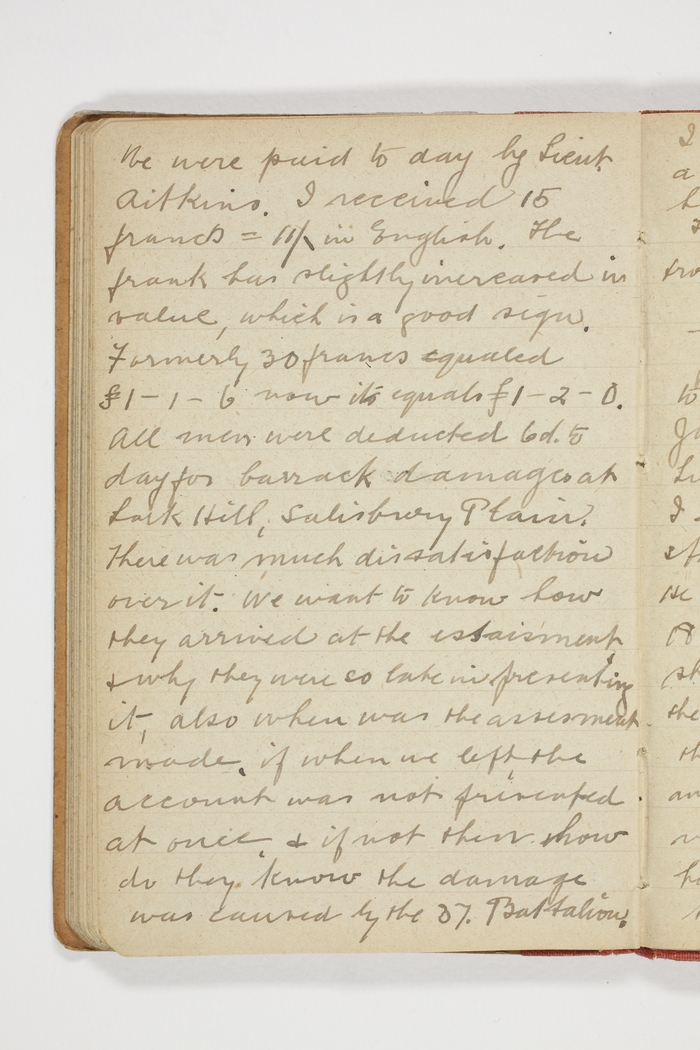 We were paid to day by Lieut
Aitkins. I received 15
francs = 11/ in English. The
frank has slightly increased in
value, which is a good sign.
Formerly 30 francs equaled
£1-1-6 now its equals £1-2-0.
All men were deducted 6d. to
day for barrack damages at
Lark Hill, Salisbury Plain.
There was much dissatisfaction
over it. We want to know how
they arrived at the
& why they were so late in presenting
it, also when was the assesment
made, if when we left the
account was not presented
at once, & if not then show
do they know the damage
was caused by the 37. Battalion.
I
a